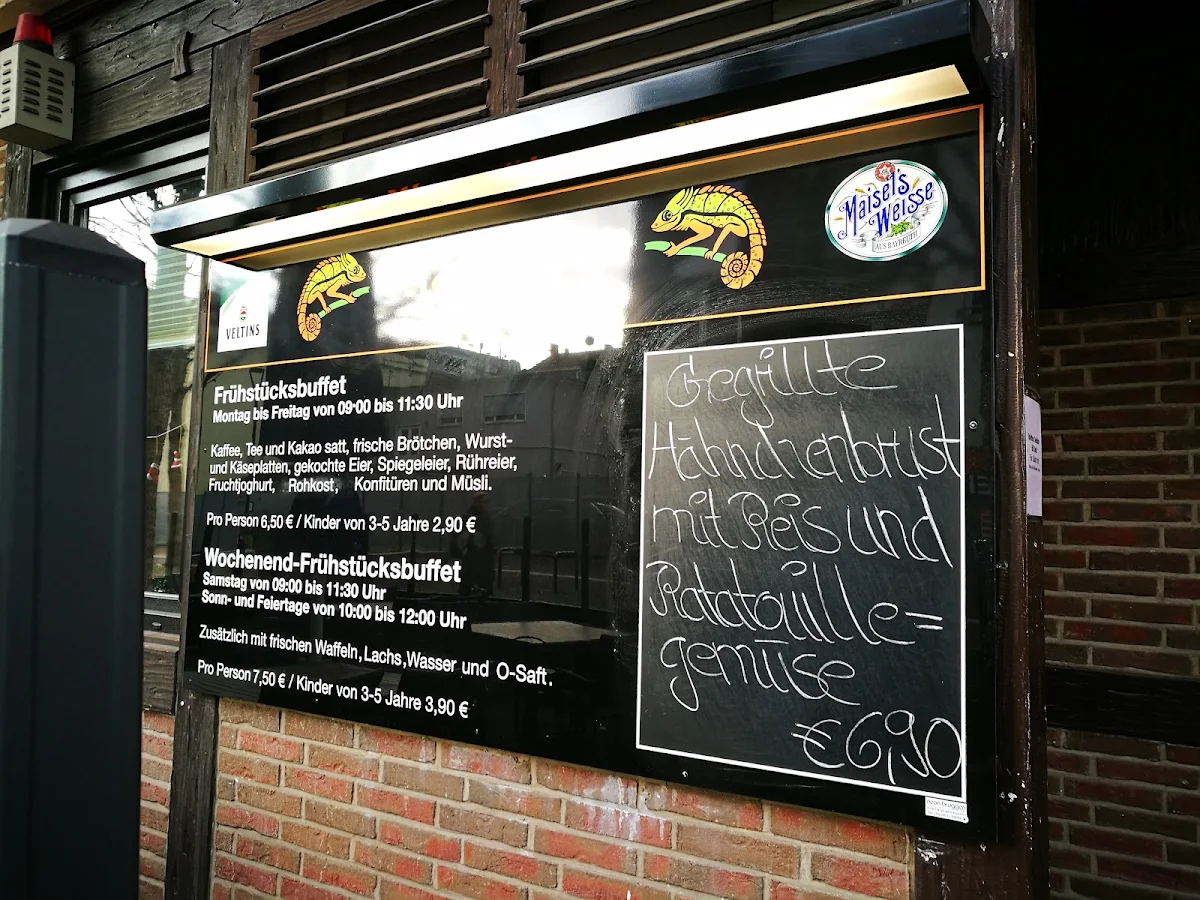 VELTINS
Maisel's
Weisse
AUS BAYREUTH
Frühstücksbuffet
Montag bis Freitag von 09:00 bis 11:30 Uhr
Kaffee, Tee und Kakao satt, frische Brötchen, Wurst-
und Käseplatten, gekochte Eier, Spiegeleier, Rühreier,
Fruchtjoghurt, Rohkost, Konfitüren und Müsli.
Pro Person 6,50 € / Kinder von 3-5 Jahre 2,90 €
Wochenend-Frühstücksbuffet
Samstag von 09:00 bis 11:30 Uhr
Sonn- und Feiertage von 10:00 bis 12:00 Uhr
Zusätzlich mit frischen Waffeln, Lachs, Wasser und O-Saft.
Pro Person 7,50 € / Kinder von 3-5 Jahre 3,90 €
Gegrillte
Hähnchenbrust
mit Reis und
Ratatouille=
gemüse
€6,90